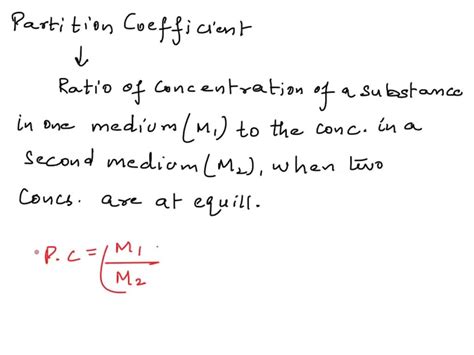 Partition Coefficient
↓
Ratio of concentration of a substance
in one medium (M1) to the conc. in a
second medium (M2), when two
concs. are at equill.
P.C = (M1
M2